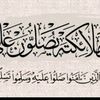 ملائكته يصلون على
الذين آمنوا صلوا عليه وسلموا